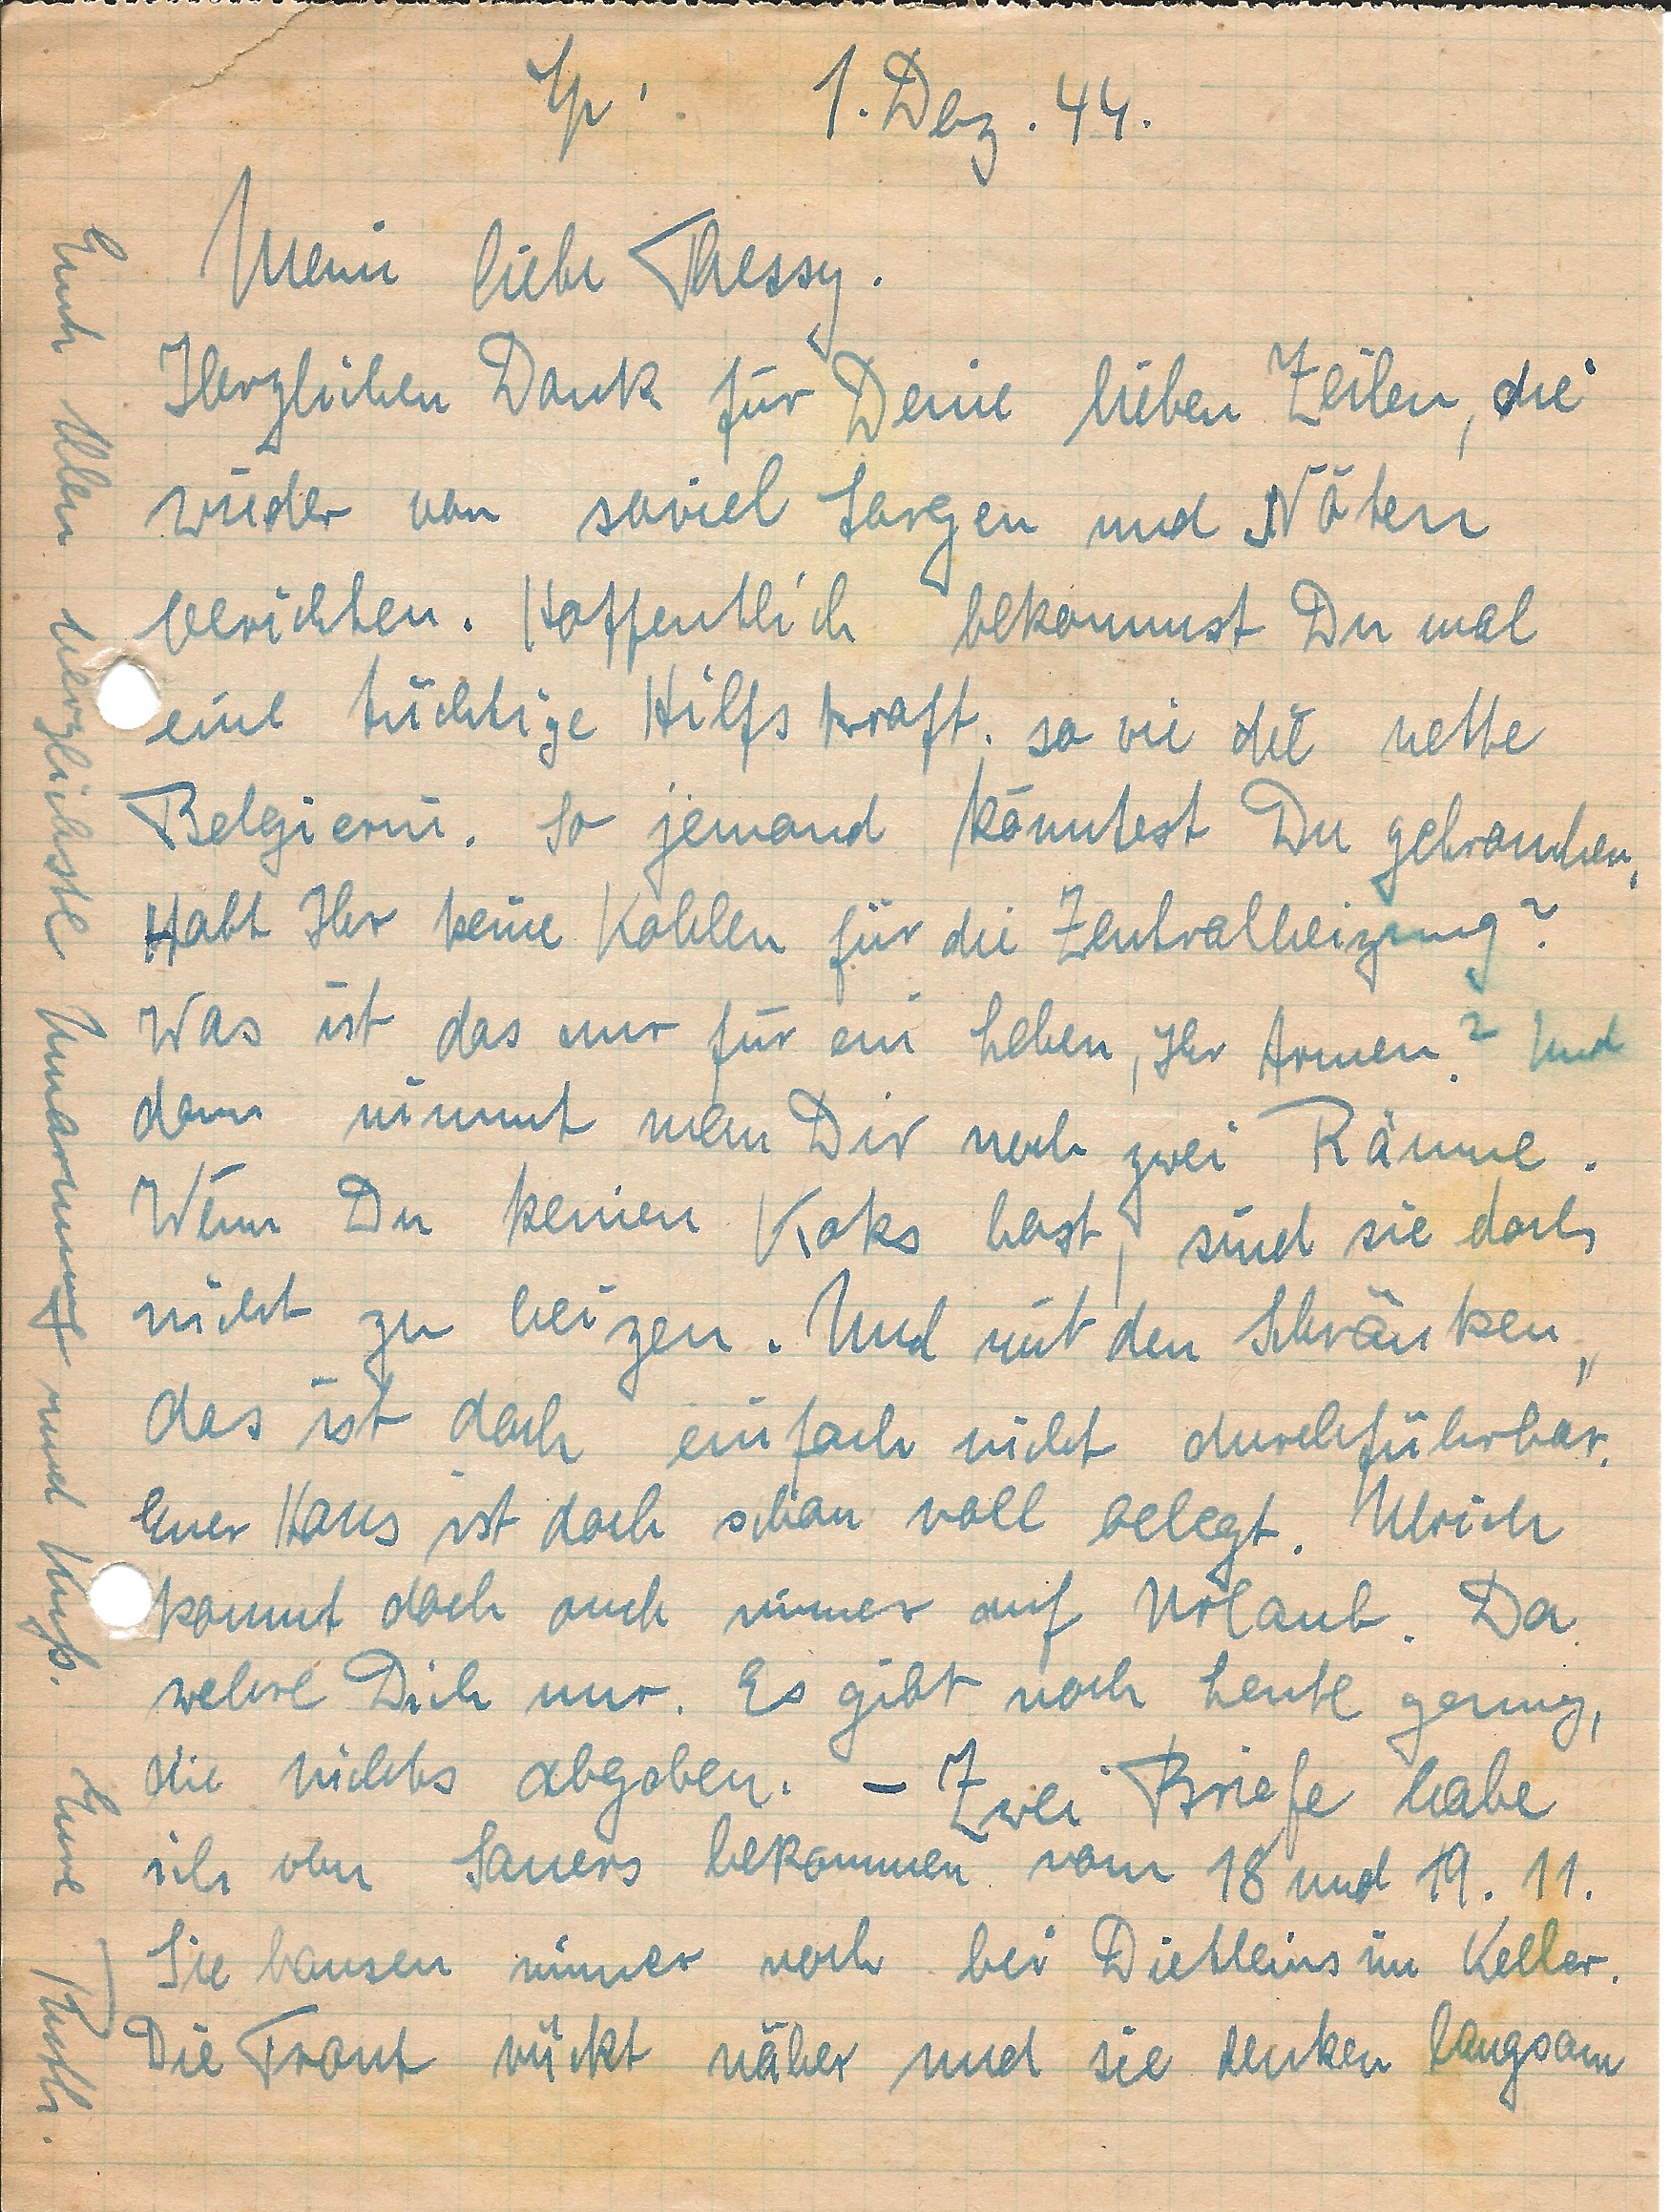 1. Dez. 44.
Meine liebe Thessy.
Herzlichen Dank für Deine lieben Zeilen, die
wieder von soviel Sorgen und Nöten
berichten. Hoffentlich bekommst Du mal
eine tüchtige Hilfskraft, so wie die nette
Belgierin. So jemand könntest Du gebrauchen.
Habt Ihr keine Kohlen für die Zentralheizung?
Was ist das nur für ein Leben, Ihr Armen? Und
dann nimmt man Dir noch zwei Räume.
Wenn Du keinen Koks hast, sind sie doch
nicht zu heizen. Und mit den Schränken,
das ist doch einfach nicht durchführbar.
Euer Haus ist doch schon voll belegt. Ulrich
kommt doch auch immer auf Urlaub. Da
wehre Dich nur. Es gibt noch Leute genug,
die nichts abgeben. – Zwei Briefe habe
ich von Sauers bekommen vom 18 und 19. 11.
Sie hausen immer noch bei Dietleins im Keller.
Die Front rückt näher und sie denken langsam
Euch Allen herzlichste Umarmung und Kuß. Eure Ruth.